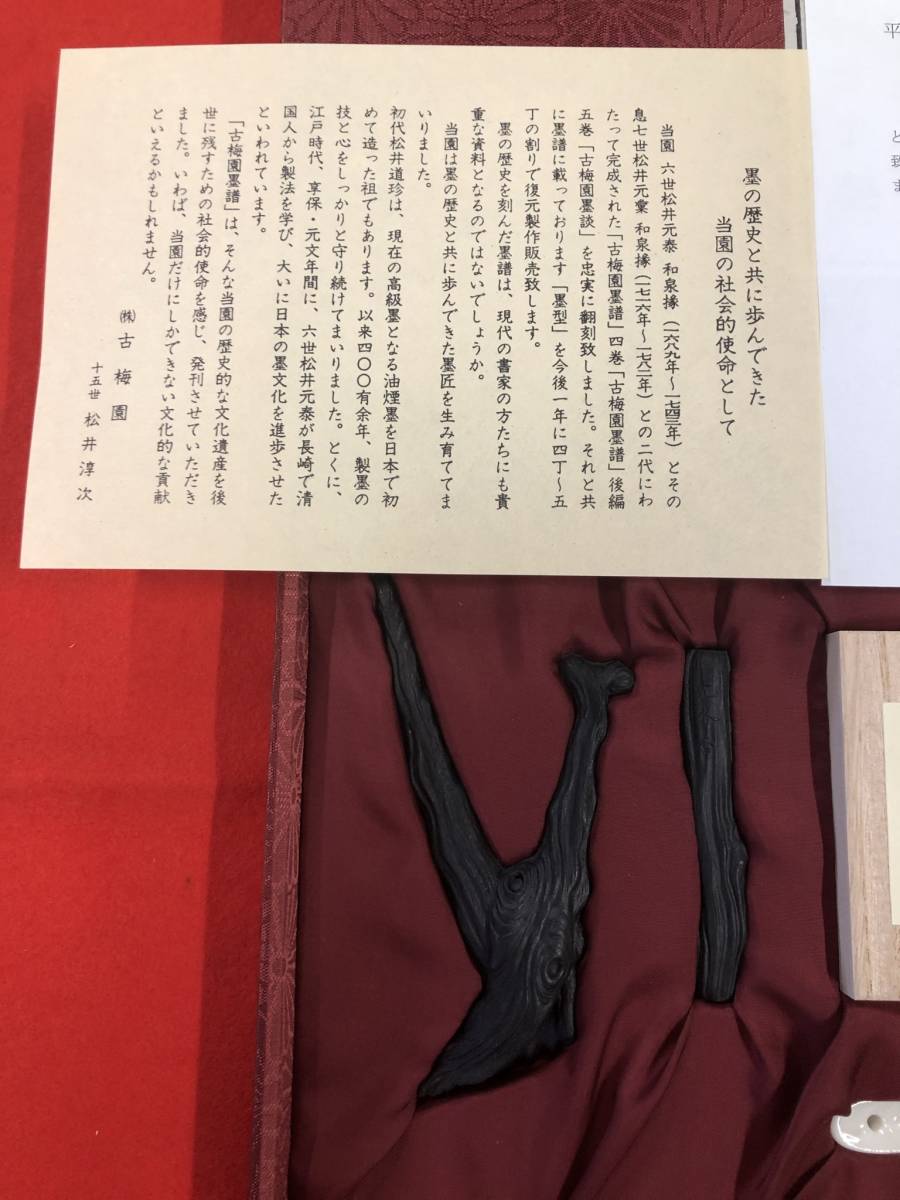 墨の歴史と共に歩んできた
当園の社会的使命として
当園 六世松井元泰 和泉掾(一六八九年〜一七四三年)とその
息七世松井元彙 和泉掾(一七一六年〜一七八二年)との二代にわ
たって完成された「古梅園墨譜」四巻「古梅園墨譜」後編
五巻「古梅園墨談」を忠実に翻刻致しました。それと共
に墨譜に載っております「墨型」を今後一年に四丁〜五
丁の割りで復元製作販売致します。
墨の歴史を刻んだ墨譜は、現代の書家の方たちにも貴
重な資料となるのではないでしょうか。
当園は墨の歴史と共に歩んできた墨匠を生み育ててま
いりました。
初代松井道珍は、現在の高級墨となる油煙墨を日本で初
めて造った祖でもあります。以来四〇〇有余年、製墨の
技と心をしっかりと守り続けてまいりました。とくに、
江戸時代、享保・元文年間に、六世松井元泰が長崎で清
国人から製法を学び、大いに日本の墨文化を進歩させた
といわれています。
「古梅園墨譜」は、そんな当園の歴史的な文化遺産を後
世に残すための社会的使命を感じ、発刊させていただき
ました。いわば、当園だけにしかできない文化的な貢献
といえるかもしれません。
㈱古梅園
十五世 松井淳次
平
と
致
ま